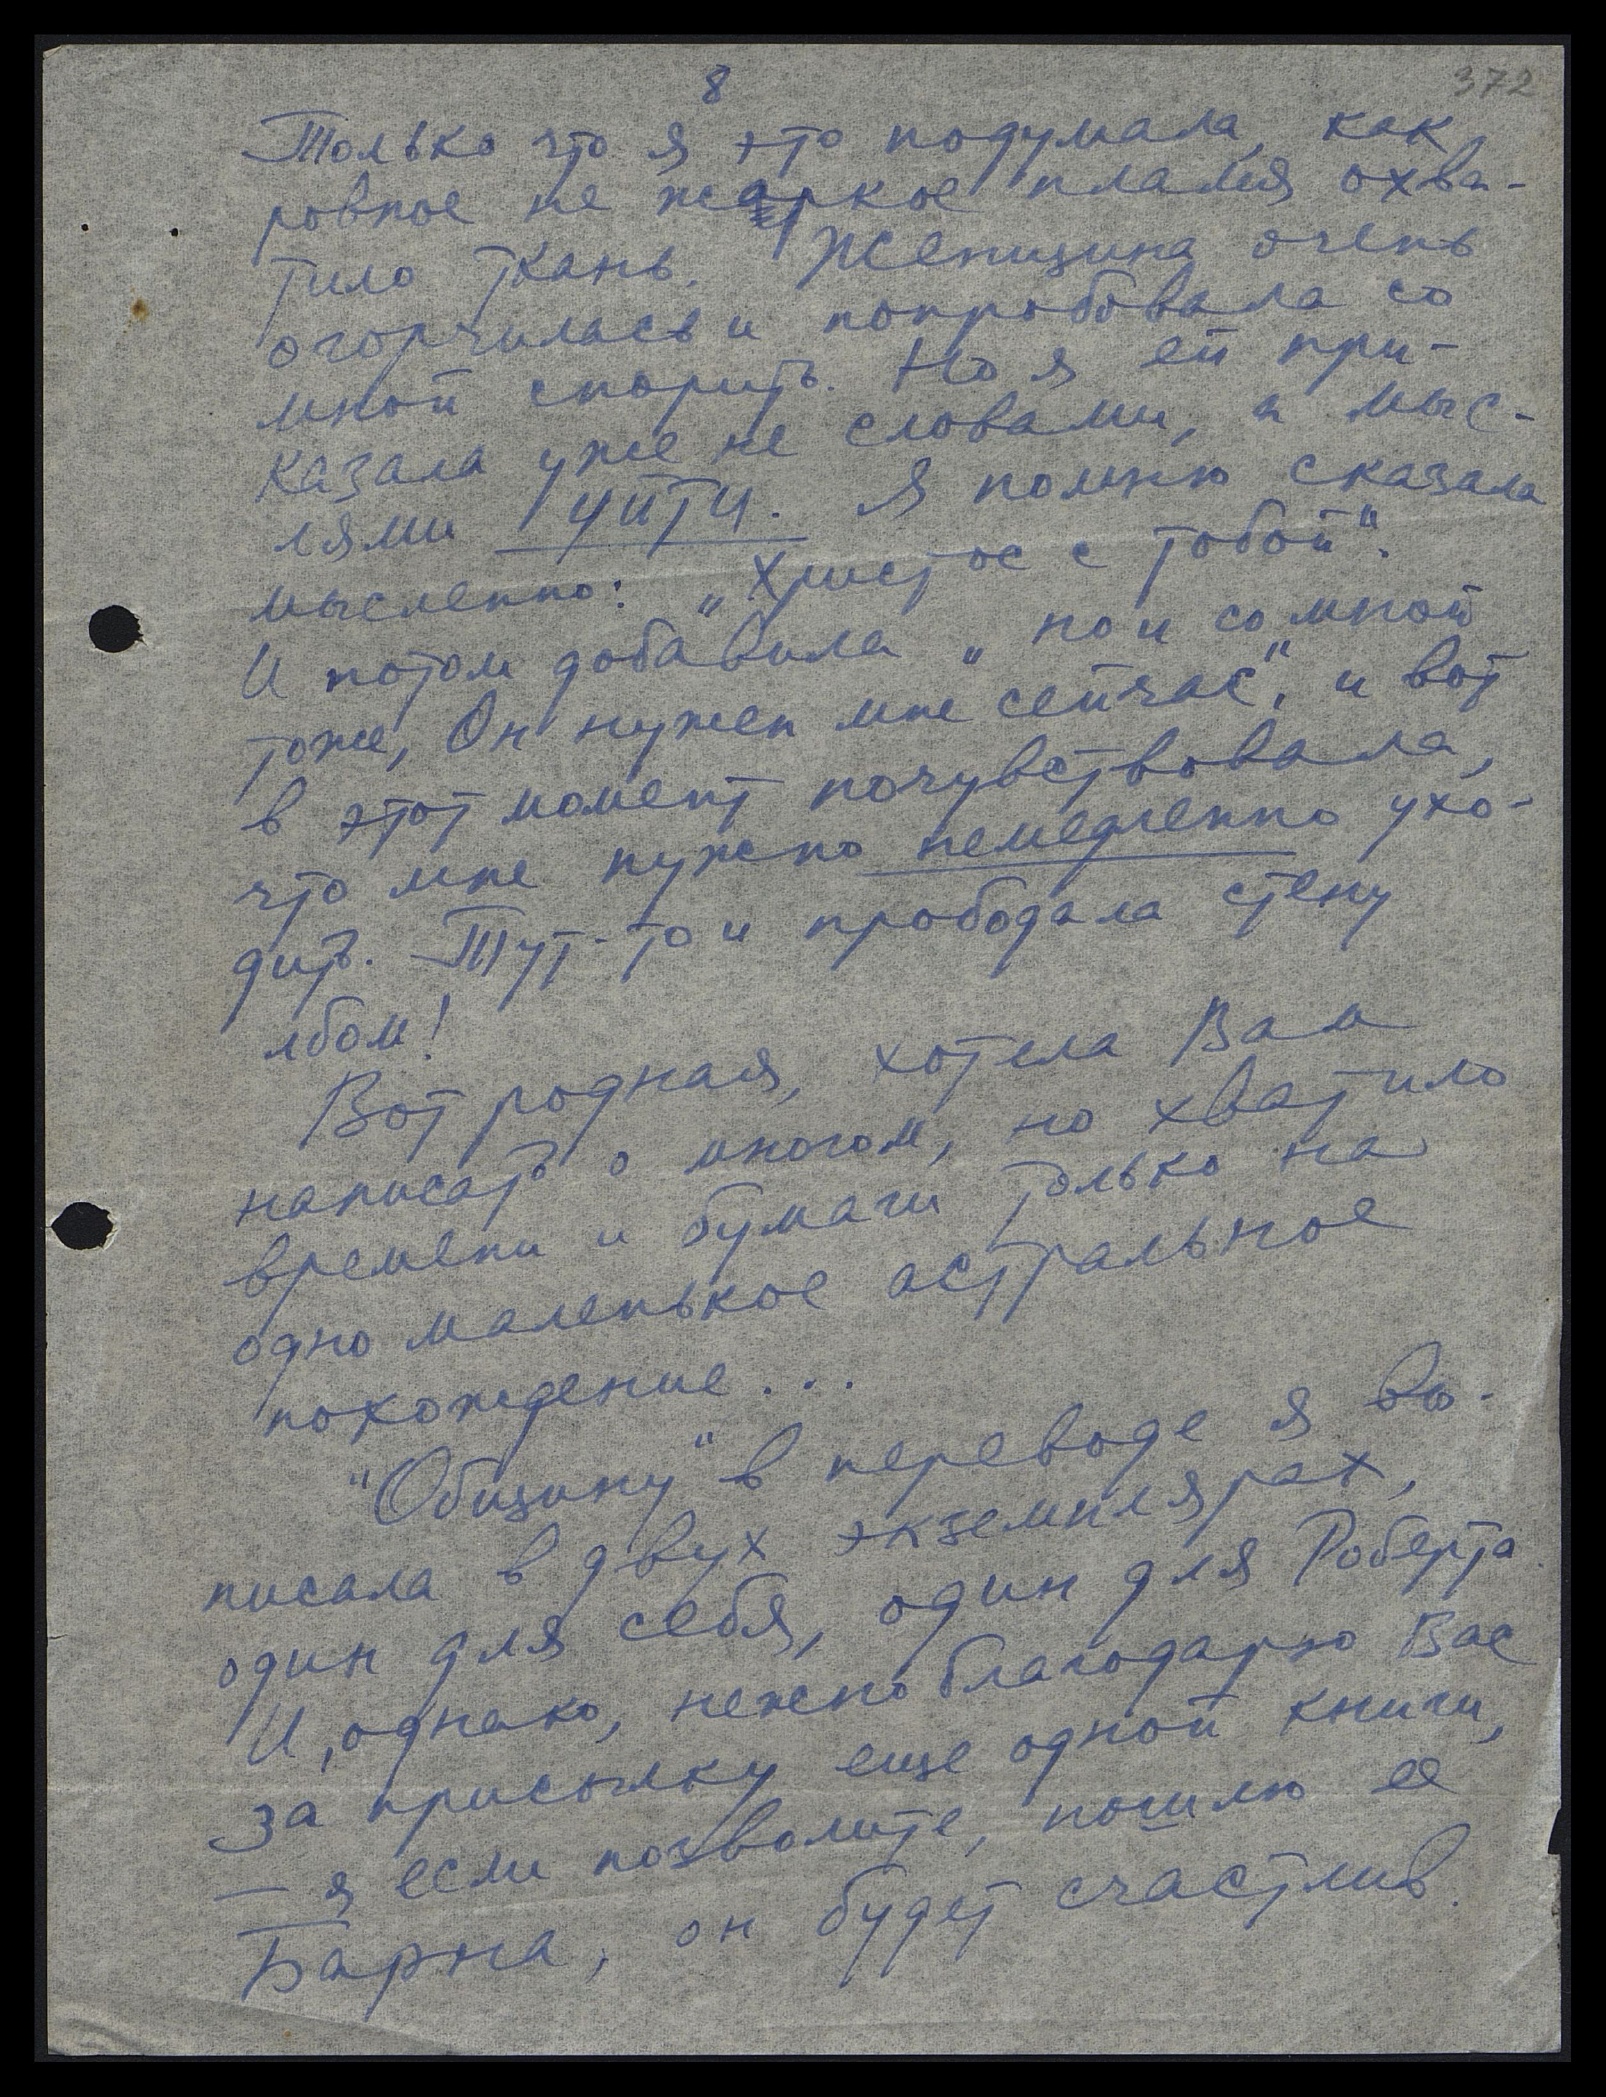 8
372
Только что я это подумала, как
ровное не жаркое пламя охва-
тило ткань. Женщина очень
огорчилась и попробовала со
мной спорить. Но я ей при-
казала уже не словами, а мыс-
лями уйти. Я помню сказала
мысленно: „Христос с тобой".
И потом добавила „но и со мной
тоже, Он нужен мне сейчас", и вот
в этот момент почувствовала,
что мне нужно немедленно ухо-
дить. Тут-то и прободала стену
лбом!
Вот родная, хотела Вам
написать о многом, но хватило
времени и бумаги только на
одно маленькое астральное
похождение...
"Общину" в переводе я вы-
писала в двух экземплярах,
один для себя, один для Роберта.
И, однако, нежно благодарю Вас
за присылку еще одной книги,
— я если позволите, пошлю ее
Барна, он будет счастлив.